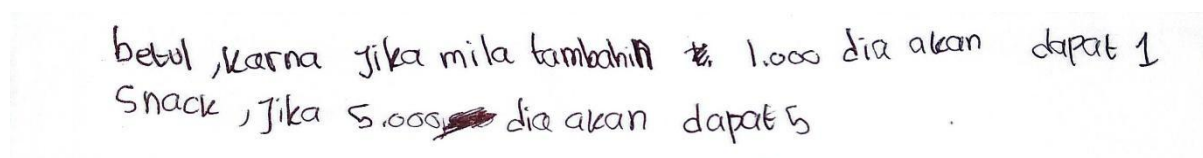 betul ,karna Jika mila tambahin 1.000 dia akan dapat 1
Snack , Jika 5.000 dia akan dapat 5